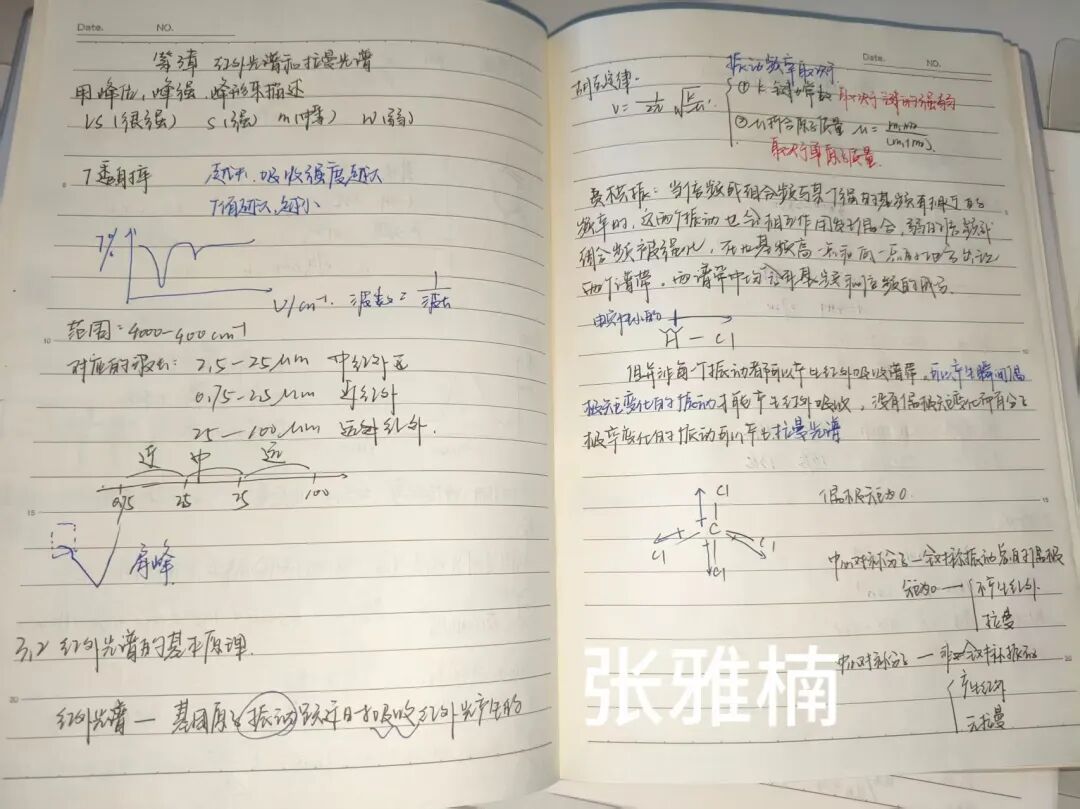 Date. NO.
第3章 红外光谱和拉曼光谱
用峰位，峰强，峰形来描述
VS（很强） S（强） m（中等） W（弱）
T透射率 越大，吸收强度越大
T值越大，越小
T%
ν/cm⁻¹. 波数 = 1/波长
范围：4000-400cm⁻¹
对应的波长：2.5-25μm 中红外区
0.75-2.5μm 近红外
25-100μm 远红外.
近 中 远
0.75 25 25 100
肩峰
3.2 红外光谱的基本原理.
红外光谱 — 基团原子振动跃迁时吸收红外光产生的
Date. NO.
胡克定律.
ν = 1/2π √k/μ
振动频率取决于
① k 键力常数 取决于键的强弱
② μ折合原子质量 μ = m₁m₂/(m₁+m₂)
取决于原子质量
费米共振：当倍频或组合频与某个强的基频有相近的
频率时，这两个振动也会相互作用发生耦合，弱的倍频或
组合频被强化，在比基频高一点和低一点的地方出现
两个谱带，两谱带中均含有基频和倍频的成分.
H — Cl
但并非每个振动都可以产生红外吸收谱带，可以产生瞬间偶
极矩变化的振动才能产生红外吸收，没有偶极矩变化但有分子
极率变化的振动可以产生拉曼光谱
Cl
C
Cl
Cl
Cl
偶极矩为0.
中心对称分子—全对称振动
矩为0 — 不产生红外
拉曼
中心对称分子 — 非全对称振动
产生红外
无拉曼
张雅楠